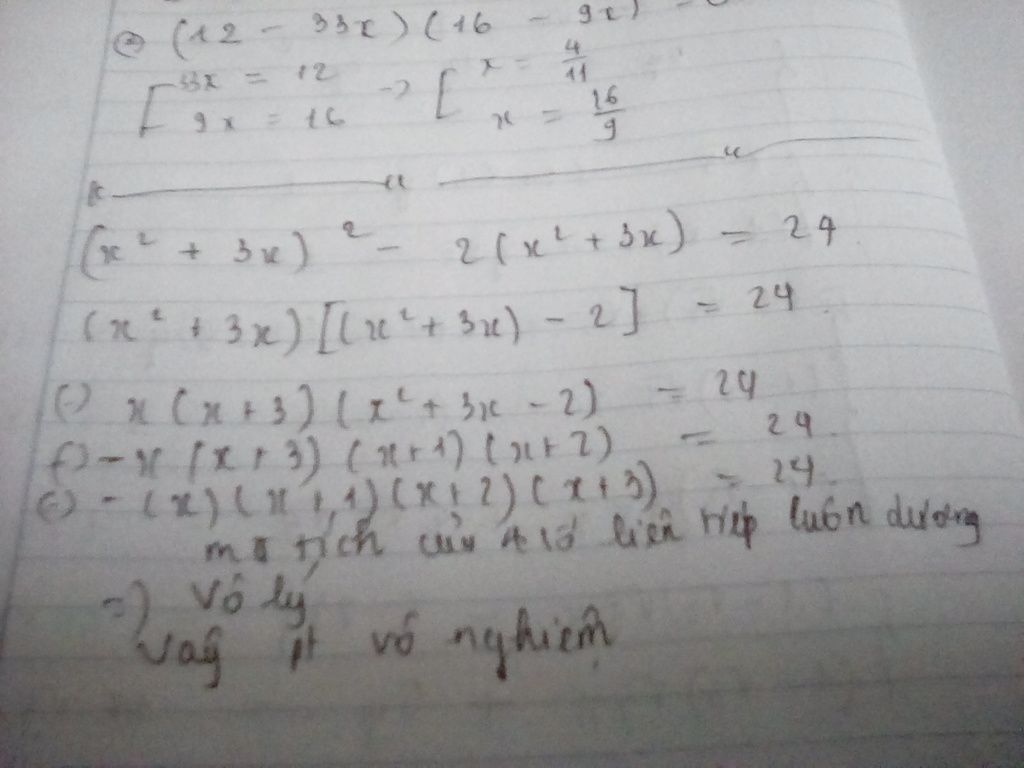 (12 - 33x)(16 - 9x) =
[33x = 12 -> [x = 4/11
9x = 16 x = 16/9
(x² + 3x)² - 2(x² + 3x) = 24
(x² + 3x)[(x² + 3x) - 2] = 24
(-) x(x+3)(x² + 3x - 2) = 24
(-) -x(x+3)(x+1)(x+2) = 24
(-) -(x)(x+1)(x+2)(x+3) = 24
mà tích của 4 số liên tiếp luôn dương
=) vô lý
vậy pt vô nghiệm